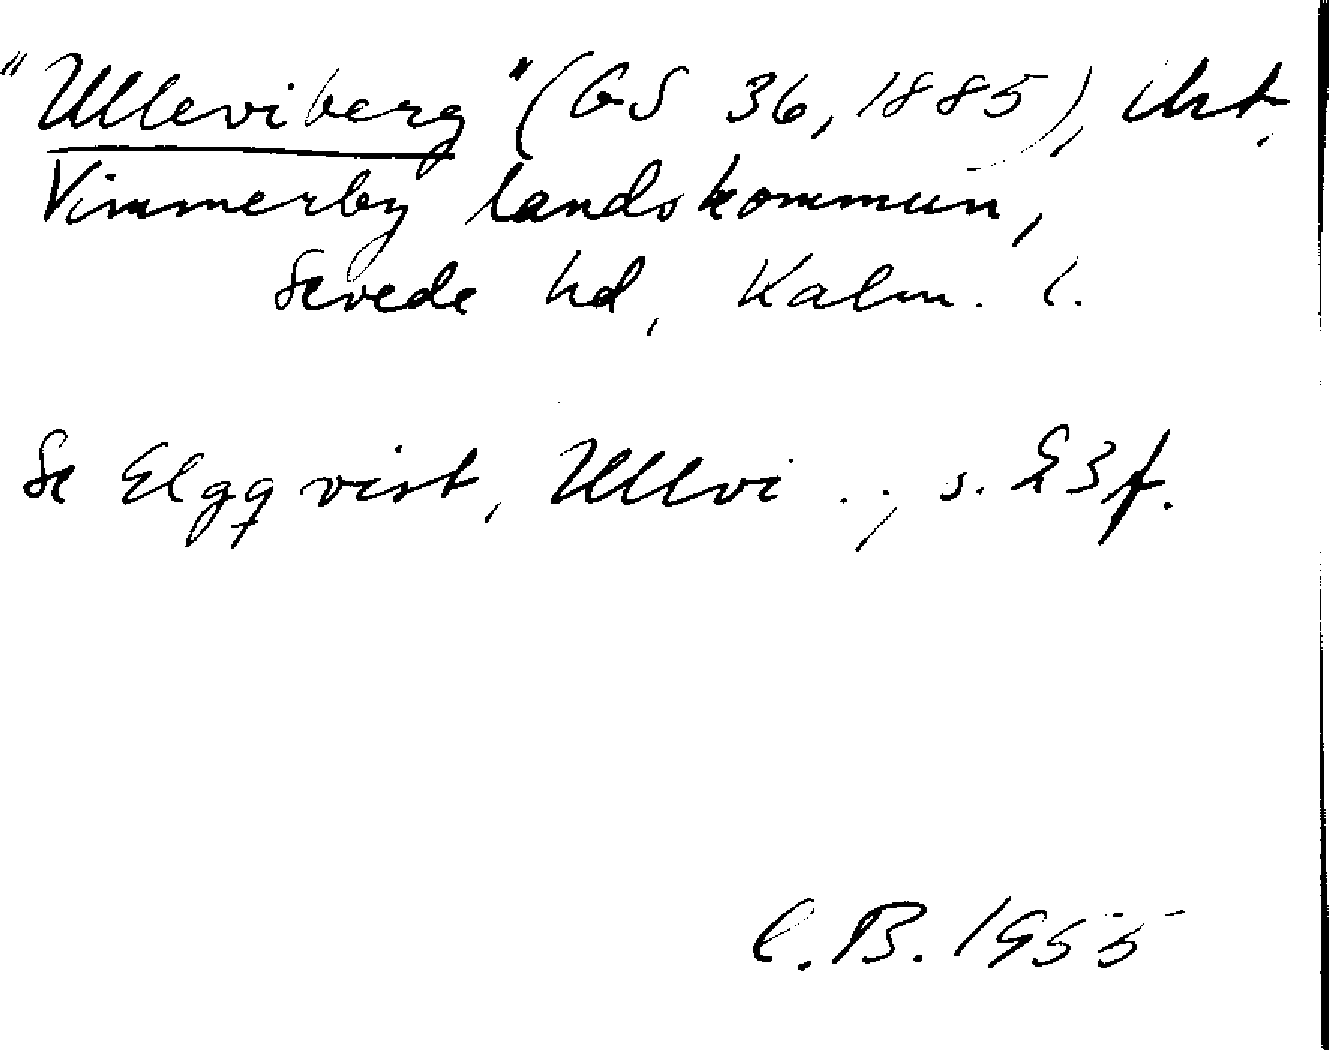 "Ulleviberg" (GS 36, 1885), ikt.
Vimmerby landskommun,
Sevede hd, Kalm. l.
Se Elgqvist, Ullvi . . , s. 83 f.
C. B. 1955